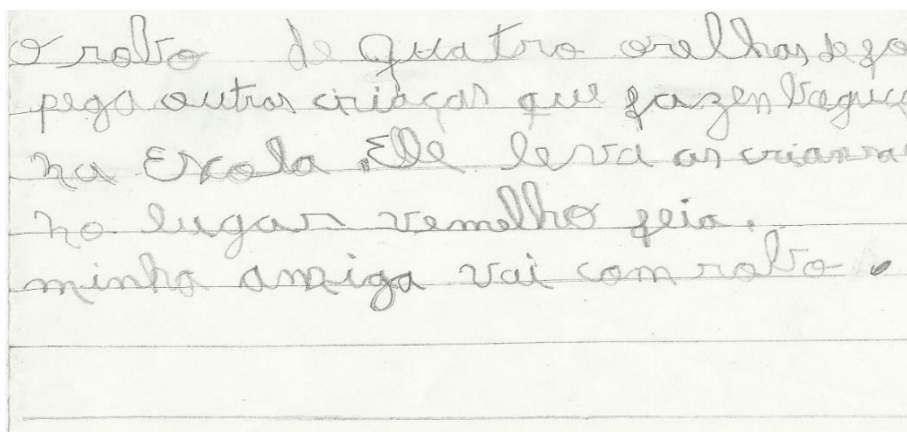 O robo de quatro orelhas
pega outras criaças que fazen
na Escola. Ele leva as
no lugar vemelho feio.
minha amiga vai com robo.